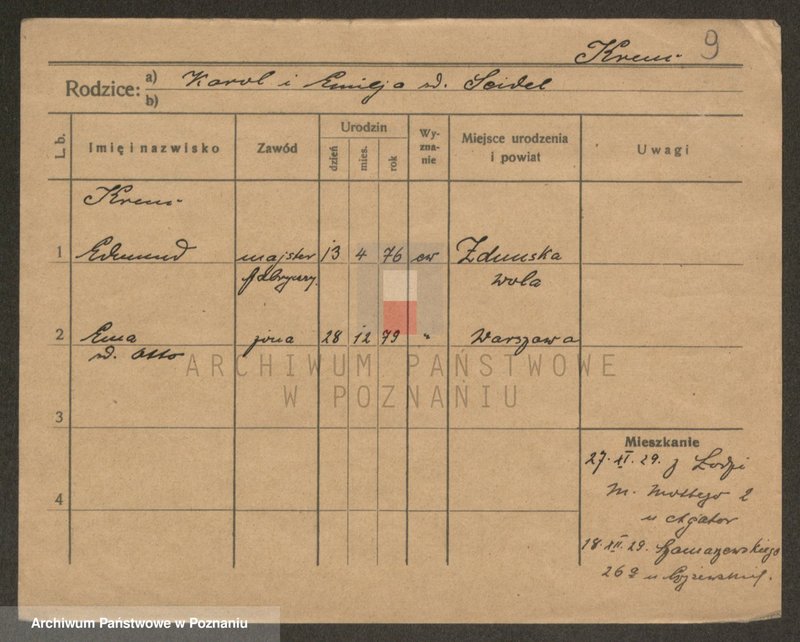 9
Krem.
Rodzice: a) Karol i Emilja ZD. Seidel
b)
L. b.
Imię i nazwisko
Zawód
Urodzin
dzień
mies.
rok
Wy-
zna-
nie
Miejsce urodzenia
i powiat
Uwagi
Krem.
1 Edmund majster 13 4 76 ew Zduńska
fabryczny. wola
2 Ema żona 28 12 79 " Warszawa
zd. Otto
3
4
Mieszkanie
27. XI. 29. z Łodzi
M. Mottego 2
u
18. XII. 29. Szamarzewskiego
26a u
ARCHIWUM PAŃSTWOWE
W POZNANIU
Archiwum Państwowe w Poznaniu